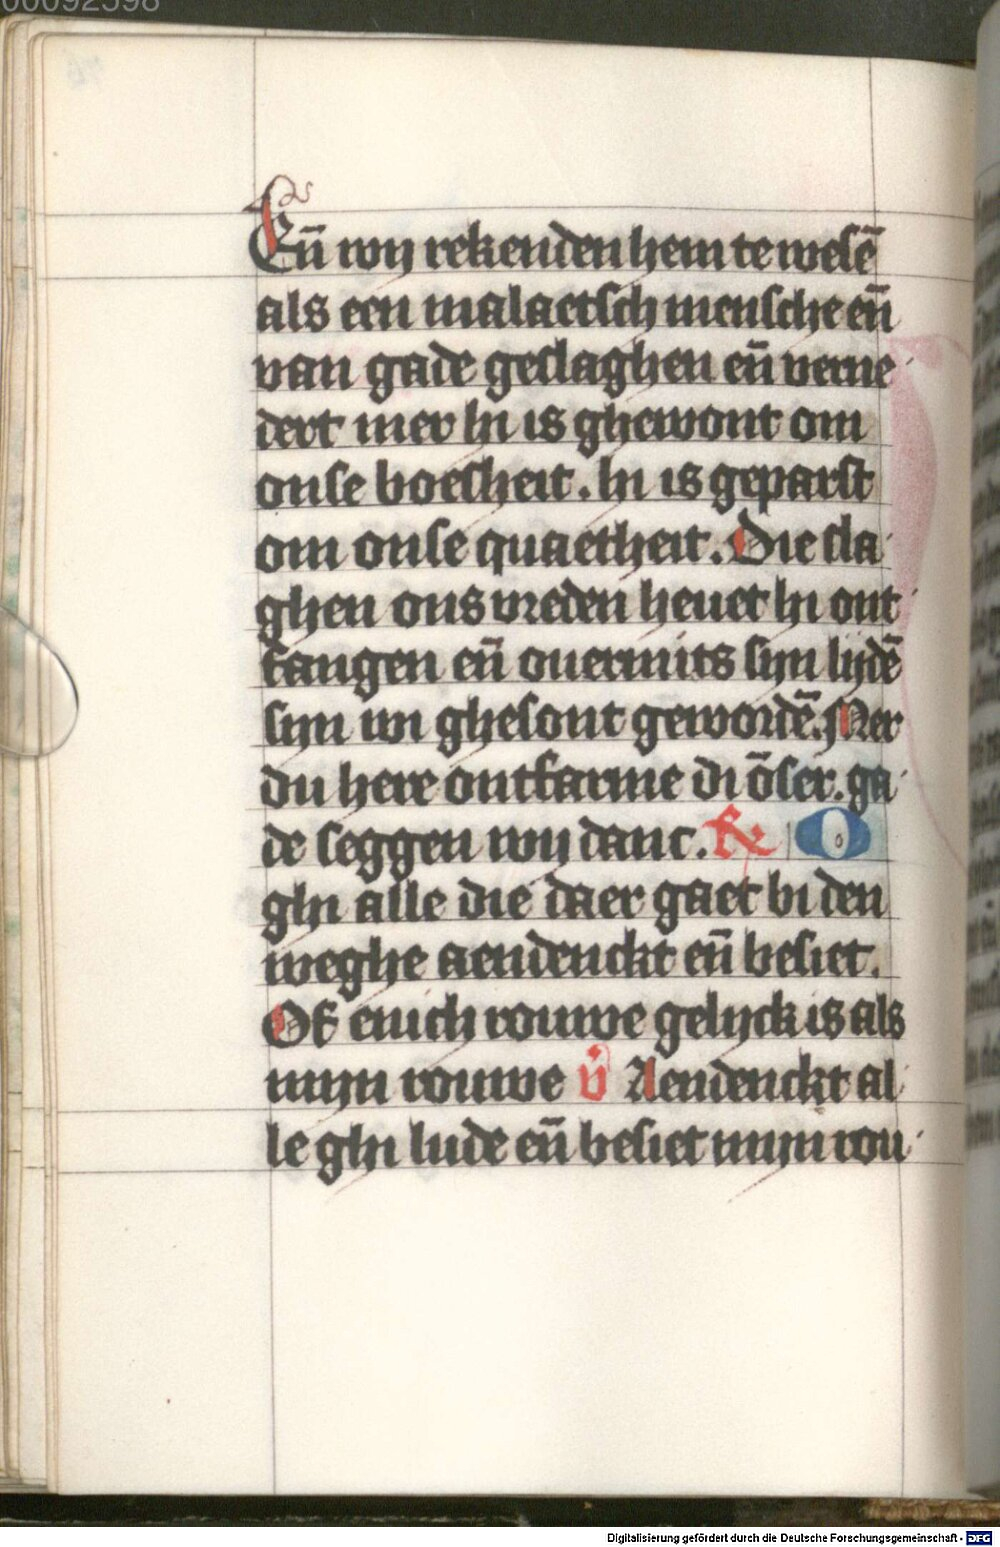 00092598
Eñ wy rekenden hem te wesē
als een malaetsch mensche eñ
van gade geslaghen eñ verne
dert mer hi is ghewont om
onse boesheit. hi is geparst
om onse quaetheit. Die sla
ghen ons vreden heuet hi ont
fangen eñ ouermits syn lijdē
syn wi ghesont gewordē. Mer
du here ontfarme di ōser. ga
de seggen wy danc. R O
ghi alle die daer gaet bi den
weghe aendenckt eñ besiet.
Of enich rouwe gelyck is als
myn rouwe v̄ Aendenckt al
le ghi lude eñ besiet myn rou
Digitalisierung gefördert durch die Deutsche Forschungsgemeinschaft - DFG